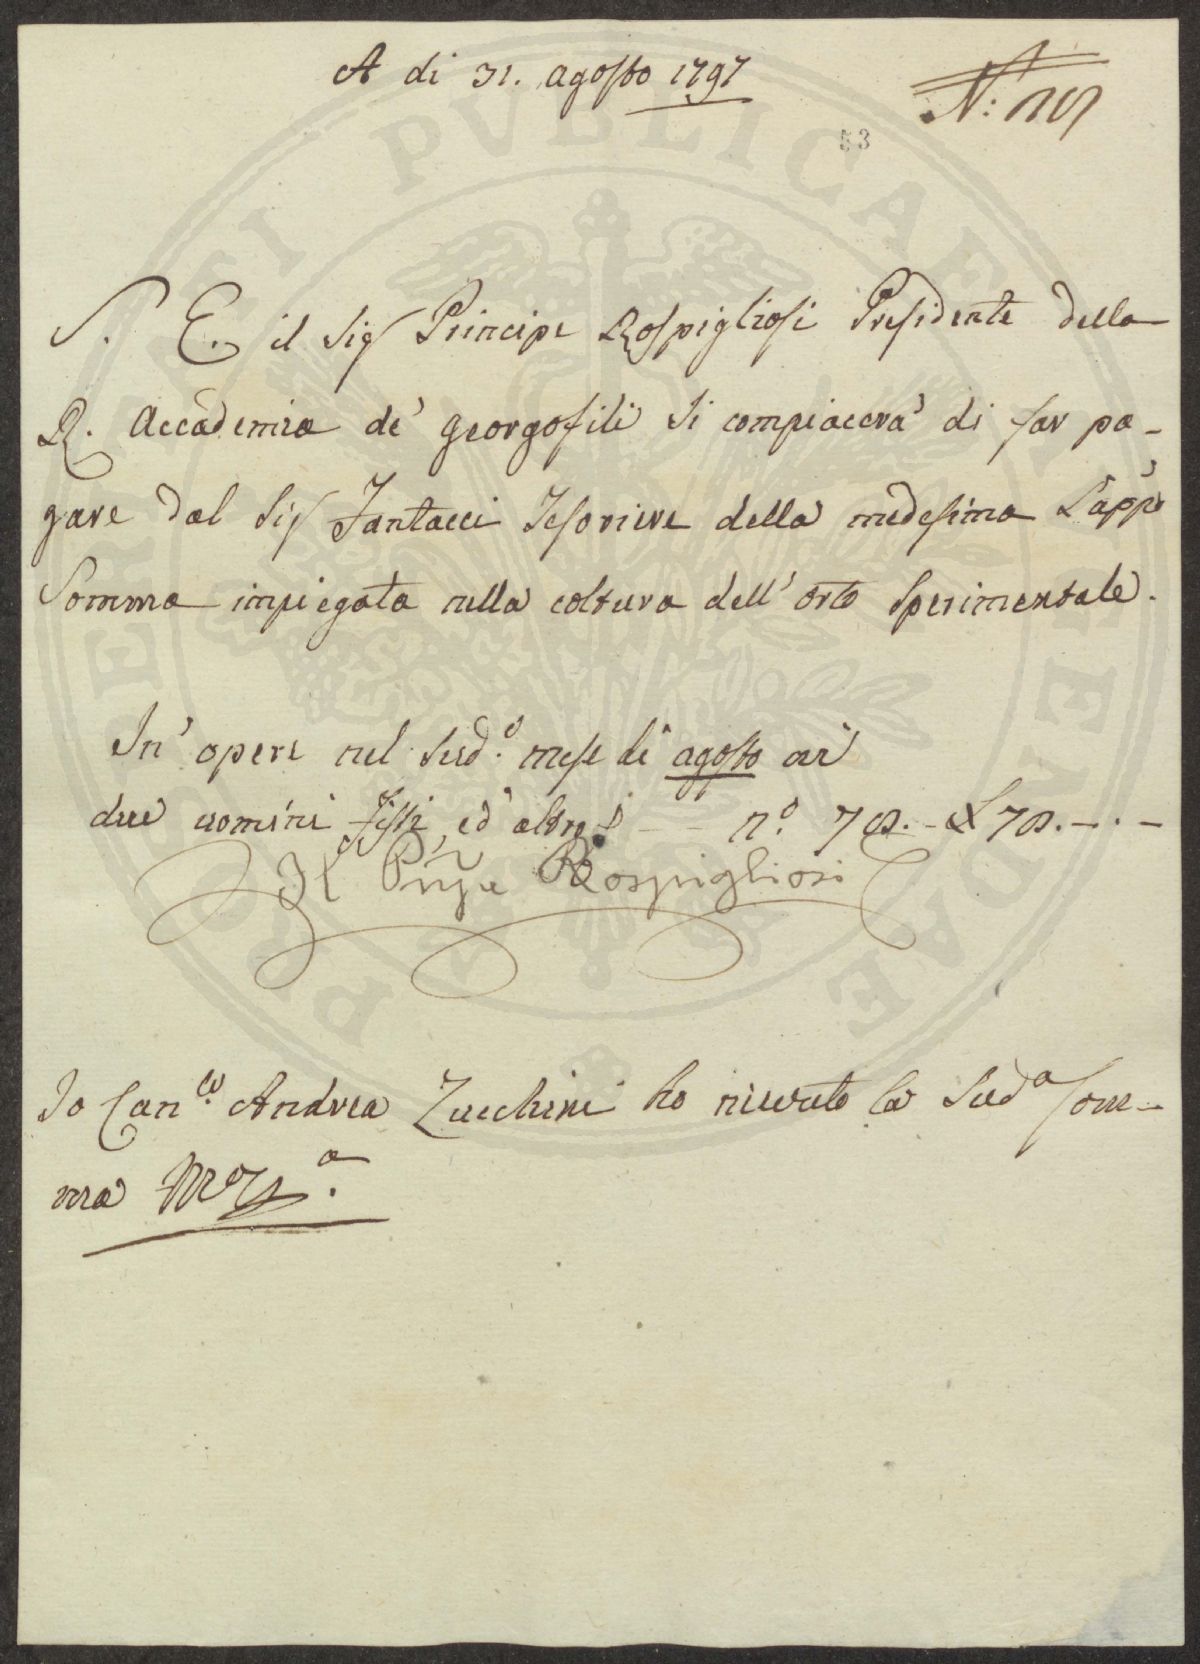 A di 31. agosto 1797
53
S. E. il Sig Principe Rospigliosi Presidente della
R. Accademia de' Georgofili si compiacerà di far pa-
gare dal Sig Fantacci Tesoriere della medesima L'app.o
Somma impiegata nella coltura dell' orto Sperimentale.
In' opere nel sud.o mese di agosto ai
due uomini fissi, ed altri n.o 70. - £ 70. - . -
Il Pnpe Rospigliosi
Io Can.co Andrea Zucchini ho ricevuto la Sud.a Som-
ma
PROSPERITATI PUBLICAE AUGENDAE